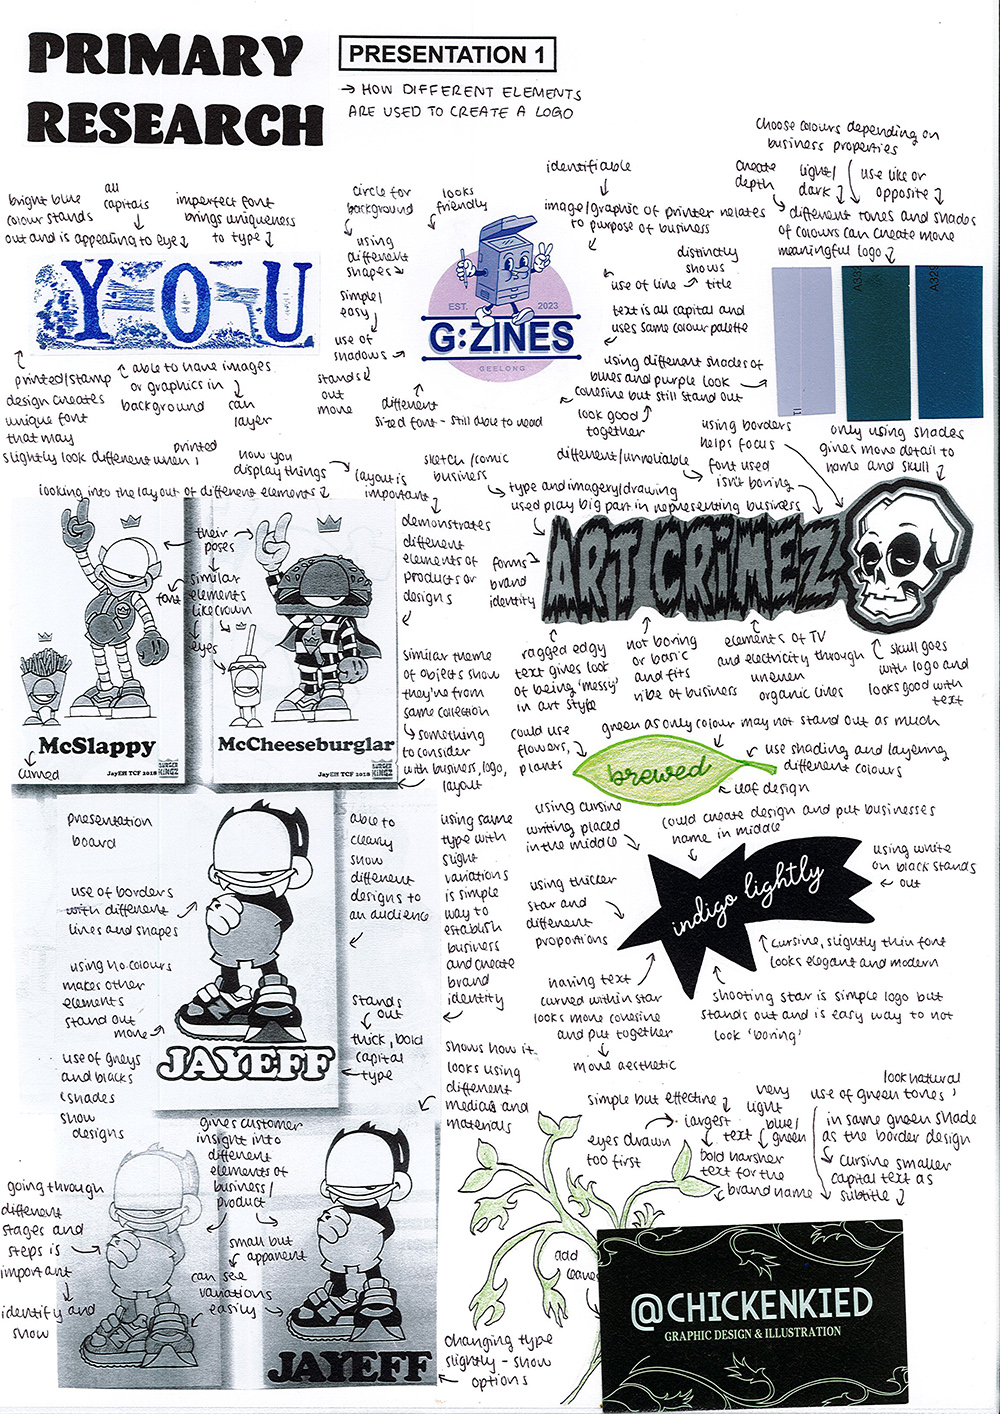 PRIMARY
RESEARCH
PRESENTATION 1
→ HOW DIFFERENT ELEMENTS
ARE USED TO CREATE A LOGO
choose colours depending on
business properties
create
depth
light/
dark
use like or
opposite
different tones and shades
of colours can create more
meaningful logo
bright blue
colour stands
out and is appealing to eye
all
capitals
imperfect font
brings uniqueness
to type
circle for
background
looks
friendly
identifiable
image/graphic of printer relates
to purpose of business
using
different
shapes
simple/
easy
use of
shadows
stands
out
more
distinctly
shows
use of line → title
text is all capital and
uses same colour palette
using different shades of
blues and purple look
cohesive but still stand out
look good
together
YOU
EST. 2023
G:ZINES
GEELONG
A32
A329
printed/stamp
design creates
unique font
that may
slightly look different when
printed
able to have images
or graphics in
background
can
layer
different
sized font - still able to read
using borders
helps focus
only using shades
gives more detail to
name and skull
how you
display things
layout is
important
sketch/comic
business
different/unreliable
font used
isn't boring
type and imagery/drawing
used play big part in representing business
looking into the layout of different elements
their
poses
font
similar
elements
like crown
eyes
demonstrates
different
elements of
products or
designs
forms
brand
identity
ART CRIMEZ
ragged edgy
text gives look
of being 'messy'
in art style
not boring
or basic
and fits
vibe of business
elements of TV
and electricity through
uneven
organic lines
skull goes
with logo and
looks good with
text
similar theme
of objects show
they're from
same collection
something
to consider
with business, logo,
layout
McSlappy
JayEff TCF 2018
BURGER
KINGZ
McCheeseburglar
JayEff TCF 2018
BURGER
KINGZ
curved
could use
flowers,
plants
green as only colour may not stand out as much
brewed
use shading and layering
different colours
leaf design
presentation
board
use of borders
with different
lines and shapes
using no colours
makes other
elements
stand out
more
use of greys
and blacks
shades
show
designs
able to
cleary
show
different
designs to
an audience
stands
out
thick, bold
capital
type
JAYEFF
using same
type with
slight
variations
is simple
way to
establish
business
and create
brand
identity
using cursive
writing placed
in the middle
could create design and put businesses
name in middle
using white
on black stands
out
using thicker
star and
different
proportions
indigo lightly
cursive, slightly thin font
looks elegant and modern
having text
curved within star
looks more cohesive
and put together
more aesthetic
shooting star is simple logo but
stands out and is easy way to not
look 'boring'
shows how it
looks using
different
medias and
materials
gives customer
insight into
different
elements of
business/
product
small but
apparent
can see
variations
easily
going through
different
stages and
steps is
important
identify and
show
JAYEFF
changing type
slightly - show
options
simple but effective
eyes drawn
too first
largest
text
very
light
blue/
green
bold harsher
text for the
brand name
look natural
use of green tones
in same green shade
as the border design
cursive smaller
capital text as
subtitle
add
leaves
@CHICKENKIED
GRAPHIC DESIGN & ILLUSTRATION